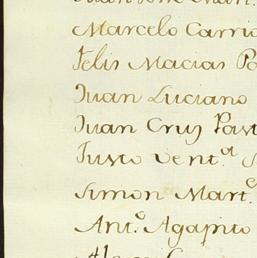 Marcelo Carrio
Felis Macias Pa
Juan Luciano
Juan Cruz Past
Justo Vent.ª
Simon Mart.
Ant.º Agapito